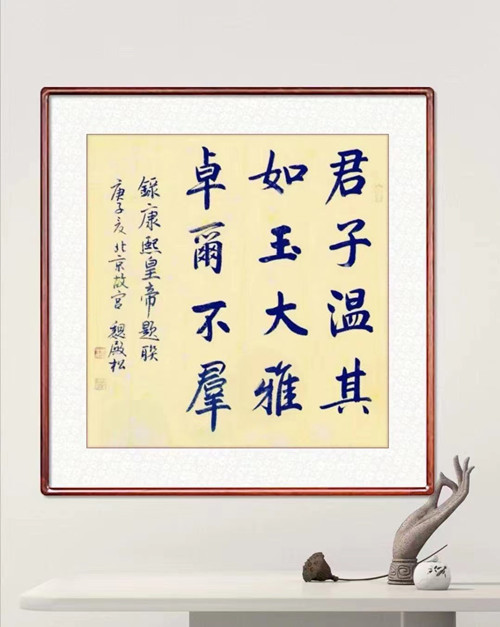 君子温其
如玉大雅
卓爾不羣
錄康熙皇帝題聯
庚子夏北京故宮 魏殿松